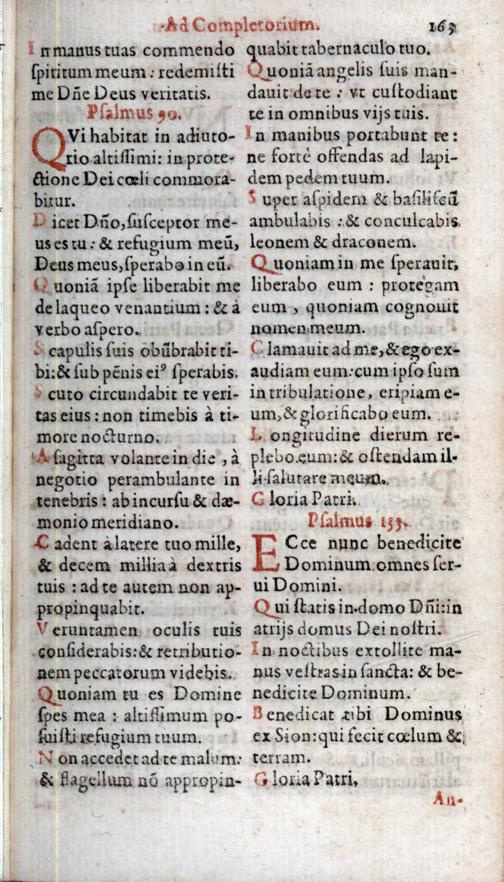 Ad Completorium. 163
In manus tuas commendo
spiritum meum: redemisti
me Dñe Deus veritatis.
Psalmus 90.
QVi habitat in adiuto-
rio altissimi: in prote-
ctione Dei cœli commora-
bitur.
Dicet Dño, susceptor me-
us es tu: & refugium meũ,
Deus meus, sperabo in eũ.
Quoniã ipse liberabit me
de laqueo venantium: & à
verbo aspero.
Scapulis suis obũbrabit ti-
bi: & sub pẽnis eiꝰ sperabis.
Scuto circundabit te veri-
tas eius: non timebis à ti-
more nocturno.
A sagitta volante in die, à
negotio perambulante in
tenebris: ab incursu & dæ-
monio meridiano.
Cadent à latere tuo mille,
& decem millia à dextris
tuis: ad te autem non ap-
propinquabit.
Veruntamen oculis tuis
considerabis: & retributio-
nem peccatorum videbis.
Quoniam tu es Domine
spes mea: altissimum po-
suisti refugium tuum.
Non accedet ad te malum:
& flagellum nõ appropin-
quabit tabernaculo tuo.
Quoniã angelis suis man-
dauit de te: vt custodiant
te in omnibus vijs tuis.
In manibus portabunt te:
ne fortè offendas ad lapi-
dem pedem tuum.
Super aspidem & basiliscũ
ambulabis: & conculcabis
leonem & draconem.
Quoniam in me sperauit,
liberabo eum: protegam
eum, quoniam cognouit
nomen meum.
Clamauit ad me, & ego ex-
audiam eum: cum ipso sum
in tribulatione, eripiam e-
um, & glorificabo eum.
Longitudine dierum re-
plebo eum: & ostendam il-
li salutare meum.
Gloria Patri.
Psalmus 133.
ECce nunc benedicite
Dominum omnes ser-
ui Domini.
Qui statis in domo Dñi: in
atrijs domus Dei nostri.
In noctibus extollite ma-
nus vestras in sancta: & be-
nedicite Dominum.
Benedicat tibi Dominus
ex Sion: qui fecit cœlum &
terram.
Gloria Patri,
An-